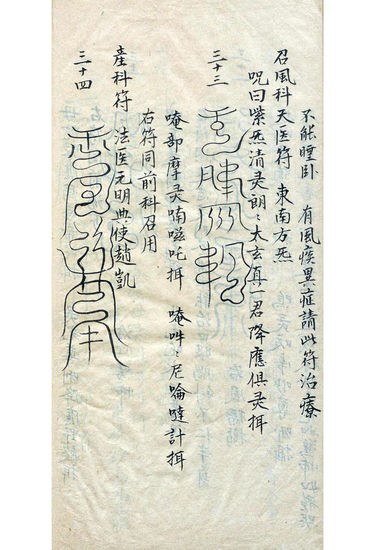 不能睡卧 有風疾異症請此符治療
召風科天医符 東南方炁
呪曰紫炁清灵朗〻太玄真一君降應俱灵揖
三十三
唵部摩灵喃嗞吒揖 唵吽〻尼唵噠計揖
右符同前科召用
產科符 法医元明典使趙凱
三十四